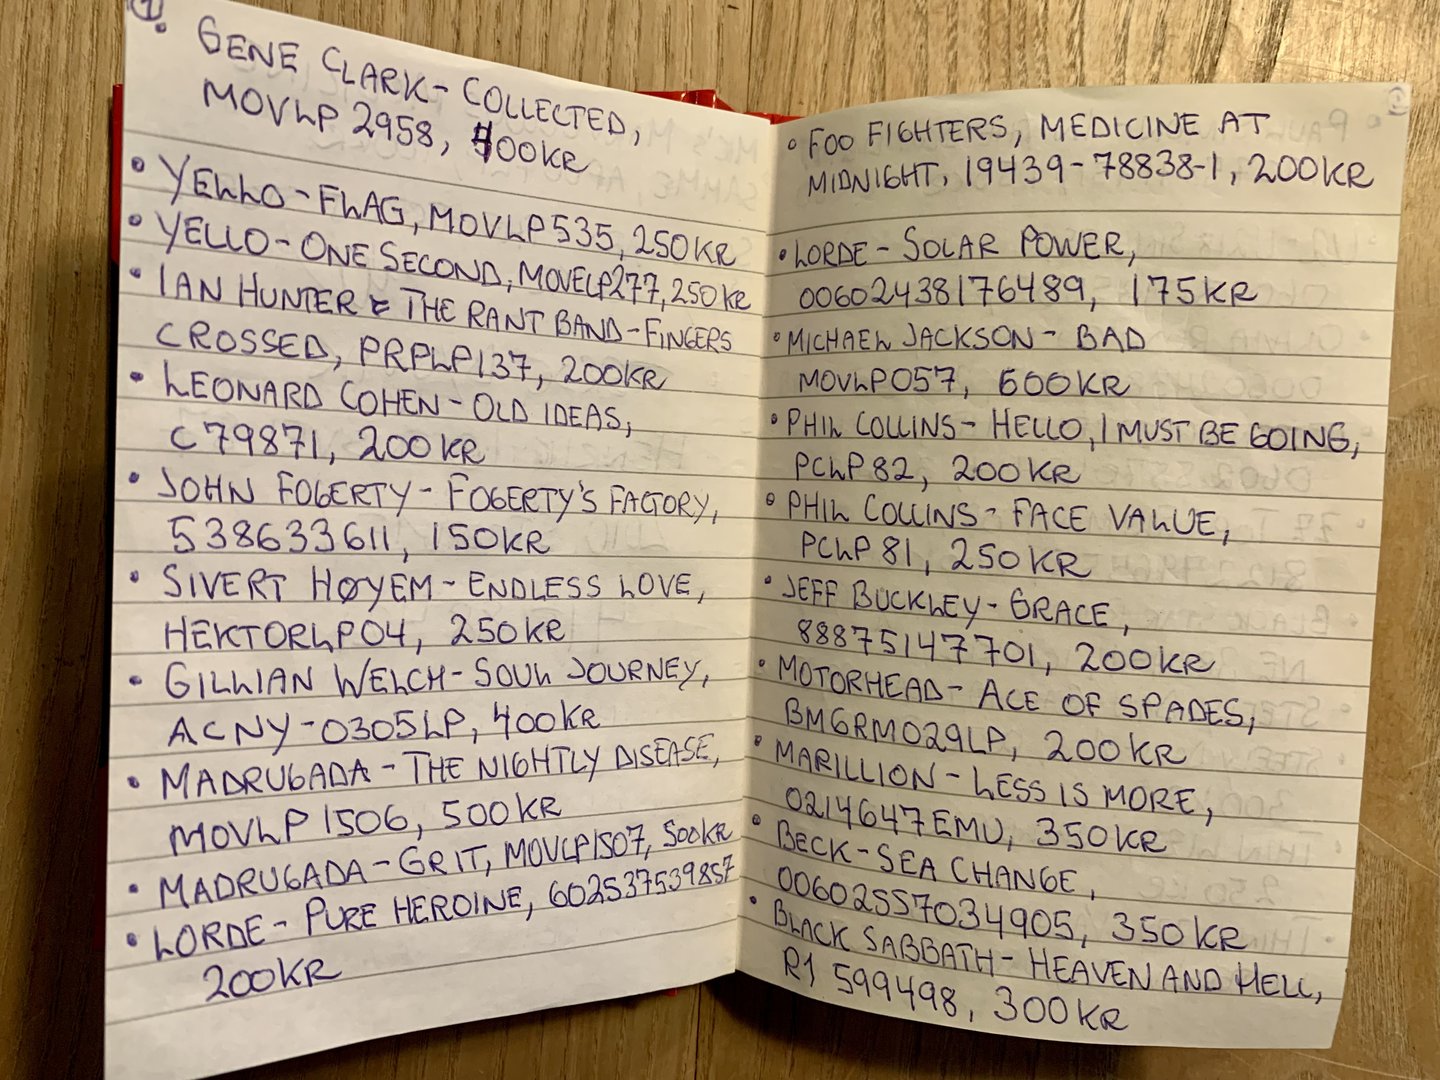 ①
• GENE CLARK - COLLECTED,
MOVLP 2958, 400KR
• YELLO - FLAG, MOVLP535, 250KR
• YELLO - ONE SECOND, MOVELP277, 250KR
• IAN HUNTER & THE RANT BAND - FINGERS
CROSSED, PRPLP137, 200KR
• LEONARD COHEN - OLD IDEAS,
C79871, 200KR
• JOHN FOGERTY - FOGERTY'S FACTORY,
538633611, 150KR
• SIVERT HØYEM - ENDLESS LOVE,
HEKTORLP04, 250KR
• GILLIAN WELCH - SOUL JOURNEY,
ACNY-0305LP, 400KR
• MADRUGADA - THE NIGHTLY DISEASE,
MOVLP 1506, 500KR
• MADRUGADA - GRIT, MOVLP1507, 500KR
• LORDE - PURE HEROINE, 602537539857
200KR
• FOO FIGHTERS, MEDICINE AT
MIDNIGHT, 19439-78838-1, 200KR
• LORDE - SOLAR POWER,
00602438176489, 175KR
• MICHAEL JACKSON - BAD
MOVLP057, 600KR
• PHIL COLLINS - HELLO, I MUST BE GOING,
PCLP 82, 200KR
• PHIL COLLINS - FACE VALUE,
PCLP 81, 250KR
• JEFF BUCKLEY - GRACE,
88875147701, 200KR
• MOTORHEAD - ACE OF SPADES,
BMGRM029LP, 200KR
• MARILLION - LESS IS MORE,
0214647EMU, 350KR
• BECK - SEA CHANGE,
00602557034905, 350KR
• BLACK SABBATH - HEAVEN AND HELL,
R1 599498, 300KR